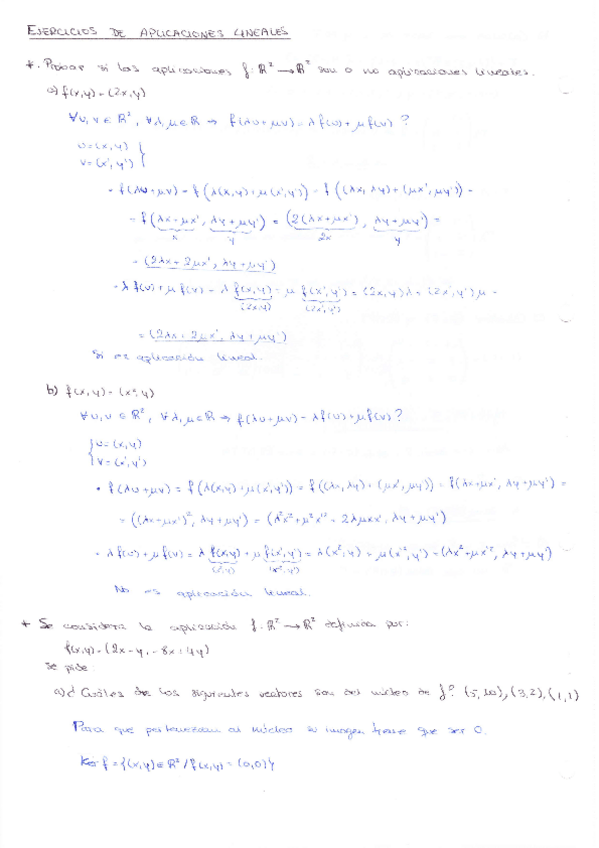 EJERCICIOS DE APLICACIONES LINEALES
*. Probar si las aplicaciones f: ℝ² → ℝ² son o no aplicaciones lineales.
a) f(x,y) = (2x,y)
∀u,v ∈ ℝ², ∀λ,μ ∈ ℝ → f(λu+μv) = λf(u)+μf(v) ?
u=(x,y)
v=(x',y')
- f(λu+μv) = f(λ(x,y)+μ(x',y')) = f((λx,λy)+(μx',μy')) =
= f(λx+μx', λy+μy') = (2(λx+μx'), λy+μy') =
x y 2x y
= (2λx+2μx', λy+μy')
- λf(u)+μf(v) = λ f(x,y) + μ f(x',y') = (2x,y)λ + (2x',y')μ =
(2x,y) (2x',y')
= (2λx+2μx', λy+μy')
Si es aplicación lineal.
b) f(x,y) = (x²,y)
∀u,v ∈ ℝ², ∀λ,μ ∈ ℝ → f(λu+μv) = λf(u)+μf(v)?
u=(x,y)
v=(x',y')
• f(λu+μv) = f(λ(x,y)+μ(x',y')) = f((λx,λy)+(μx',μy')) = f(λx+μx', λy+μy') =
= ((λx+μx')², λy+μy') = (λ²x²+μ²x'²+2λμxx', λy+μy')
• λf(u)+μf(v) = λ f(x,y) + μ f(x',y') = λ(x²,y) + μ(x'²,y') = (λx²+μx'², λy+μy')
(x²,y) (x'²,y')
No es aplicación lineal.
* Se considera la aplicación f: ℝ² → ℝ² definida por:
f(x,y) = (2x-y, -8x+4y)
se pide
a) ¿Cuáles de los siguientes vectores son del núcleo de f? (5,10),(3,2),(1,1)
Para que pertenezcan al núcleo su imagen tiene que ser 0.
Ker f = {(x,y) ∈ ℝ² / f(x,y) = (0,0)}